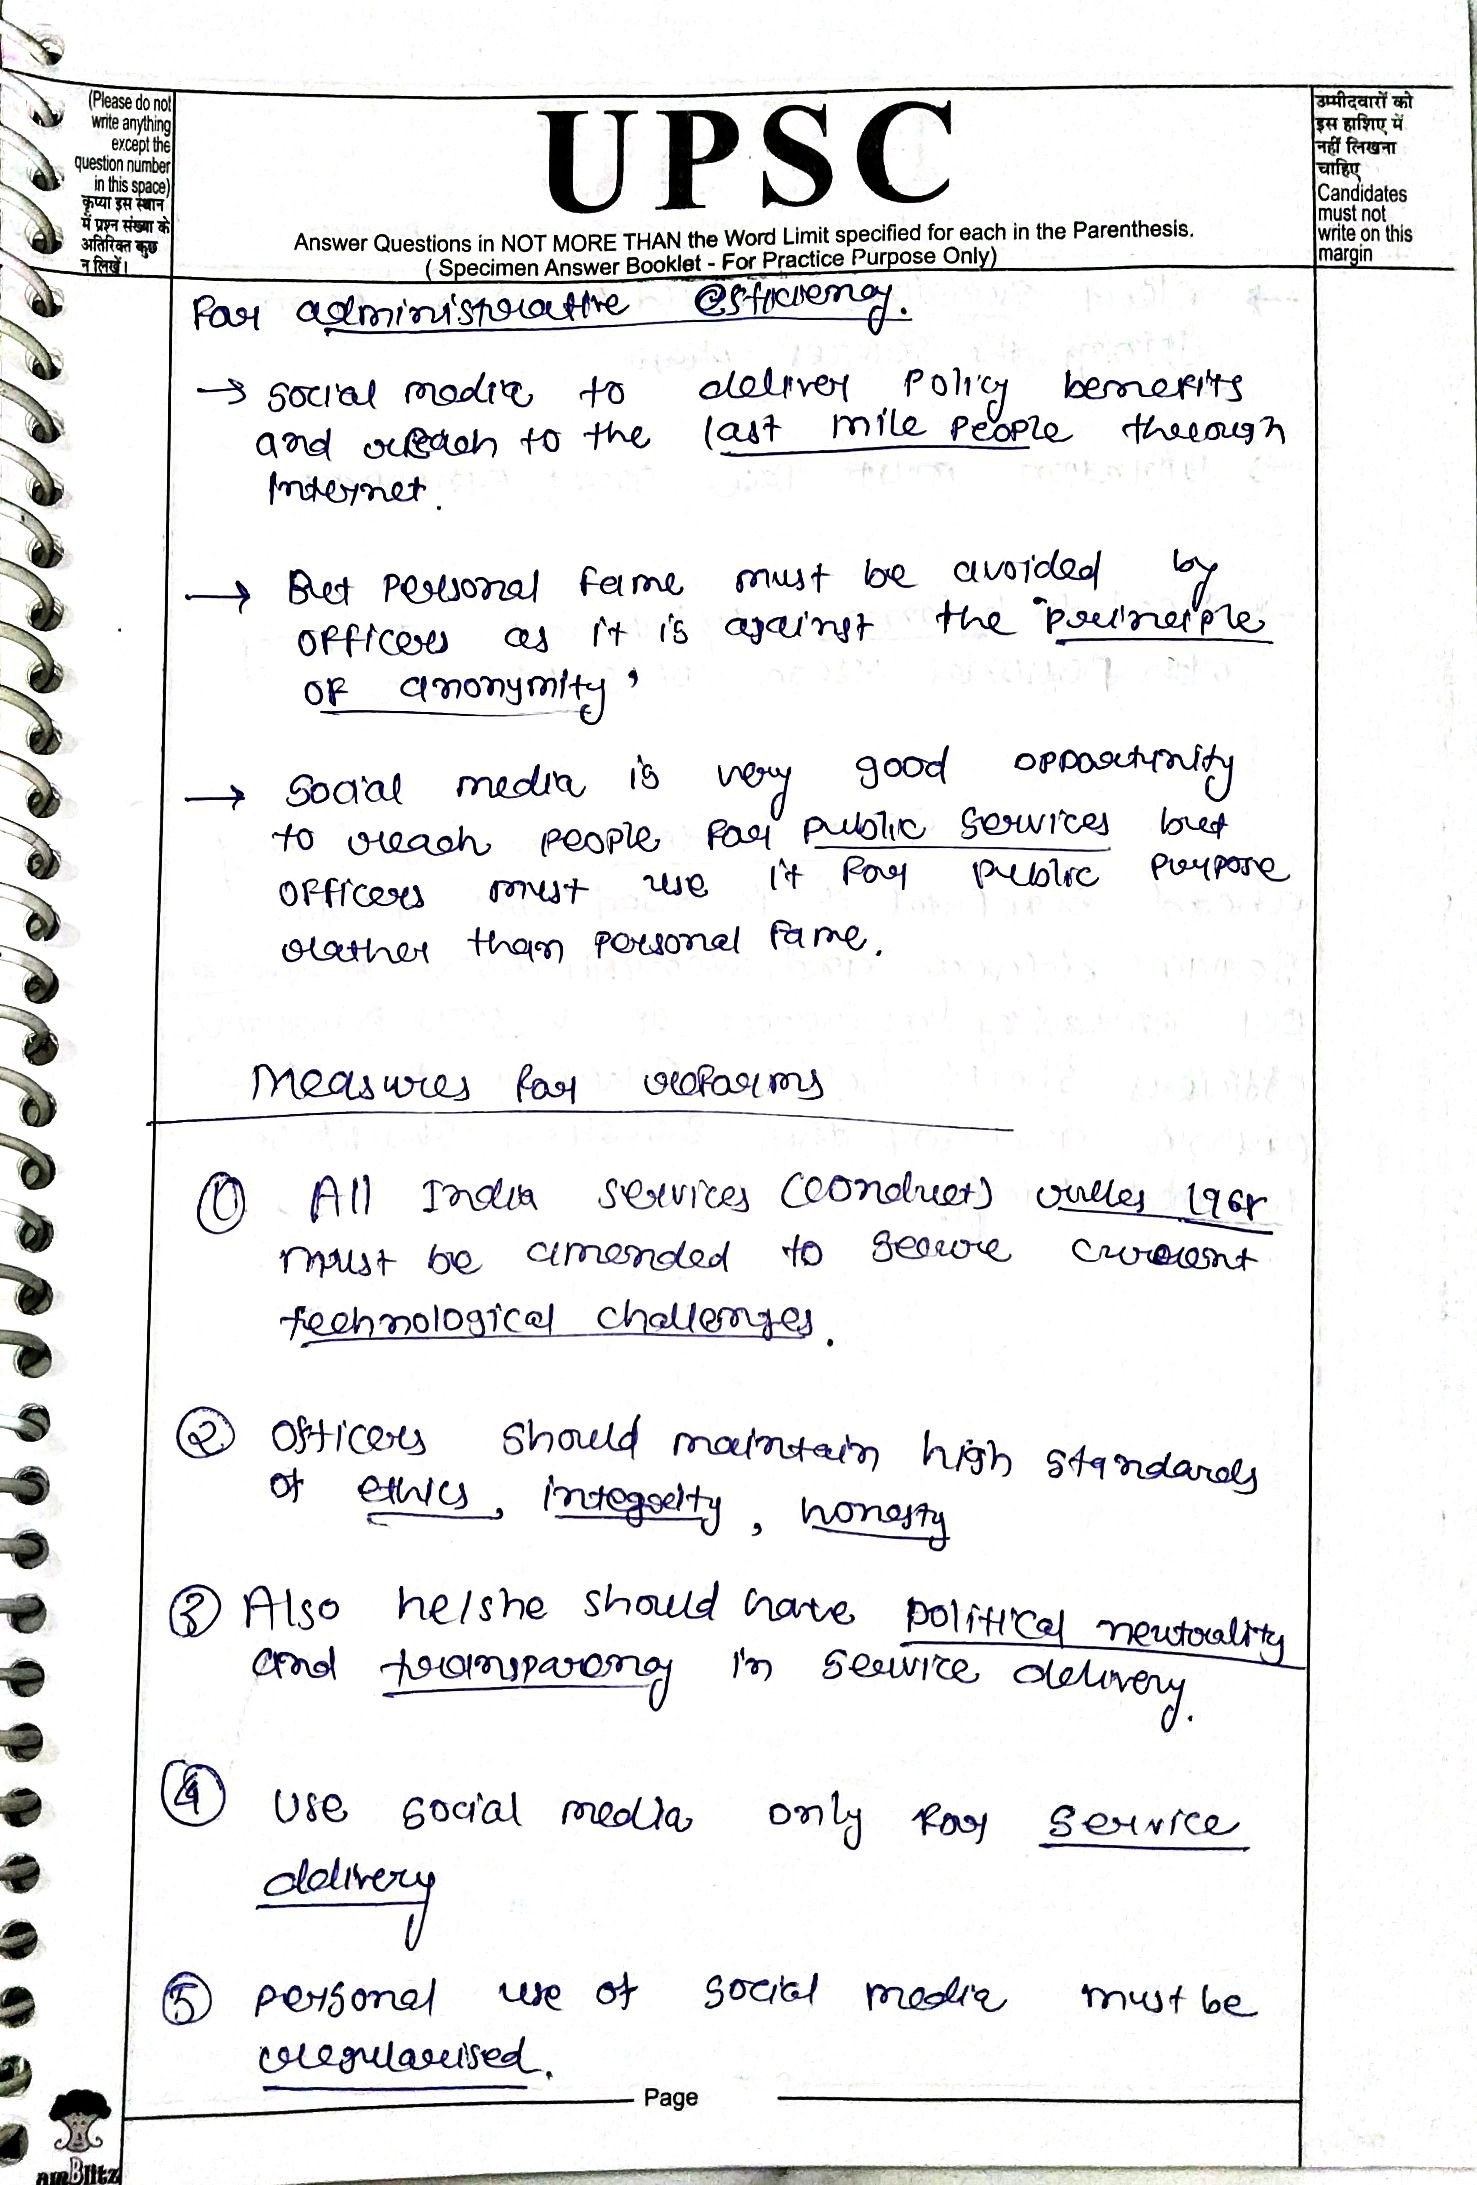 (Please do not
write anything
except the
question number
in this space)
कृप्या इस स्थान
में प्रश्न संख्या के
अतिरिक्त कुछ
न लिखें।
UPSC
Answer Questions in NOT MORE THAN the Word Limit specified for each in the Parenthesis.
( Specimen Answer Booklet - For Practice Purpose Only)
उम्मीदवारों को
इस हाशिए में
नहीं लिखना
चाहिए
Candidates
must not
write on this
margin
For administrative efficiency.
→ Social media to deliver policy benefits
and reach to the last mile people through
Internet.
→ But personal fame must be avoided by
officers as it is against the "principle
of anonymity'
→ Social media is very good opportunity
to reach people for public services but
officers must use it for public purpose
rather than personal fame.
Measures for reforms
① All India services (conduct) rules 1968
must be amended to secure current
technological challenges.
② Officers should maintain high standards
of ethics, integrity, honesty
③ Also he/she should have political neutrality
and transparency in service delivery.
④ Use social media only for service
delivery
⑤ personal use of social media must be
regularised.
Page